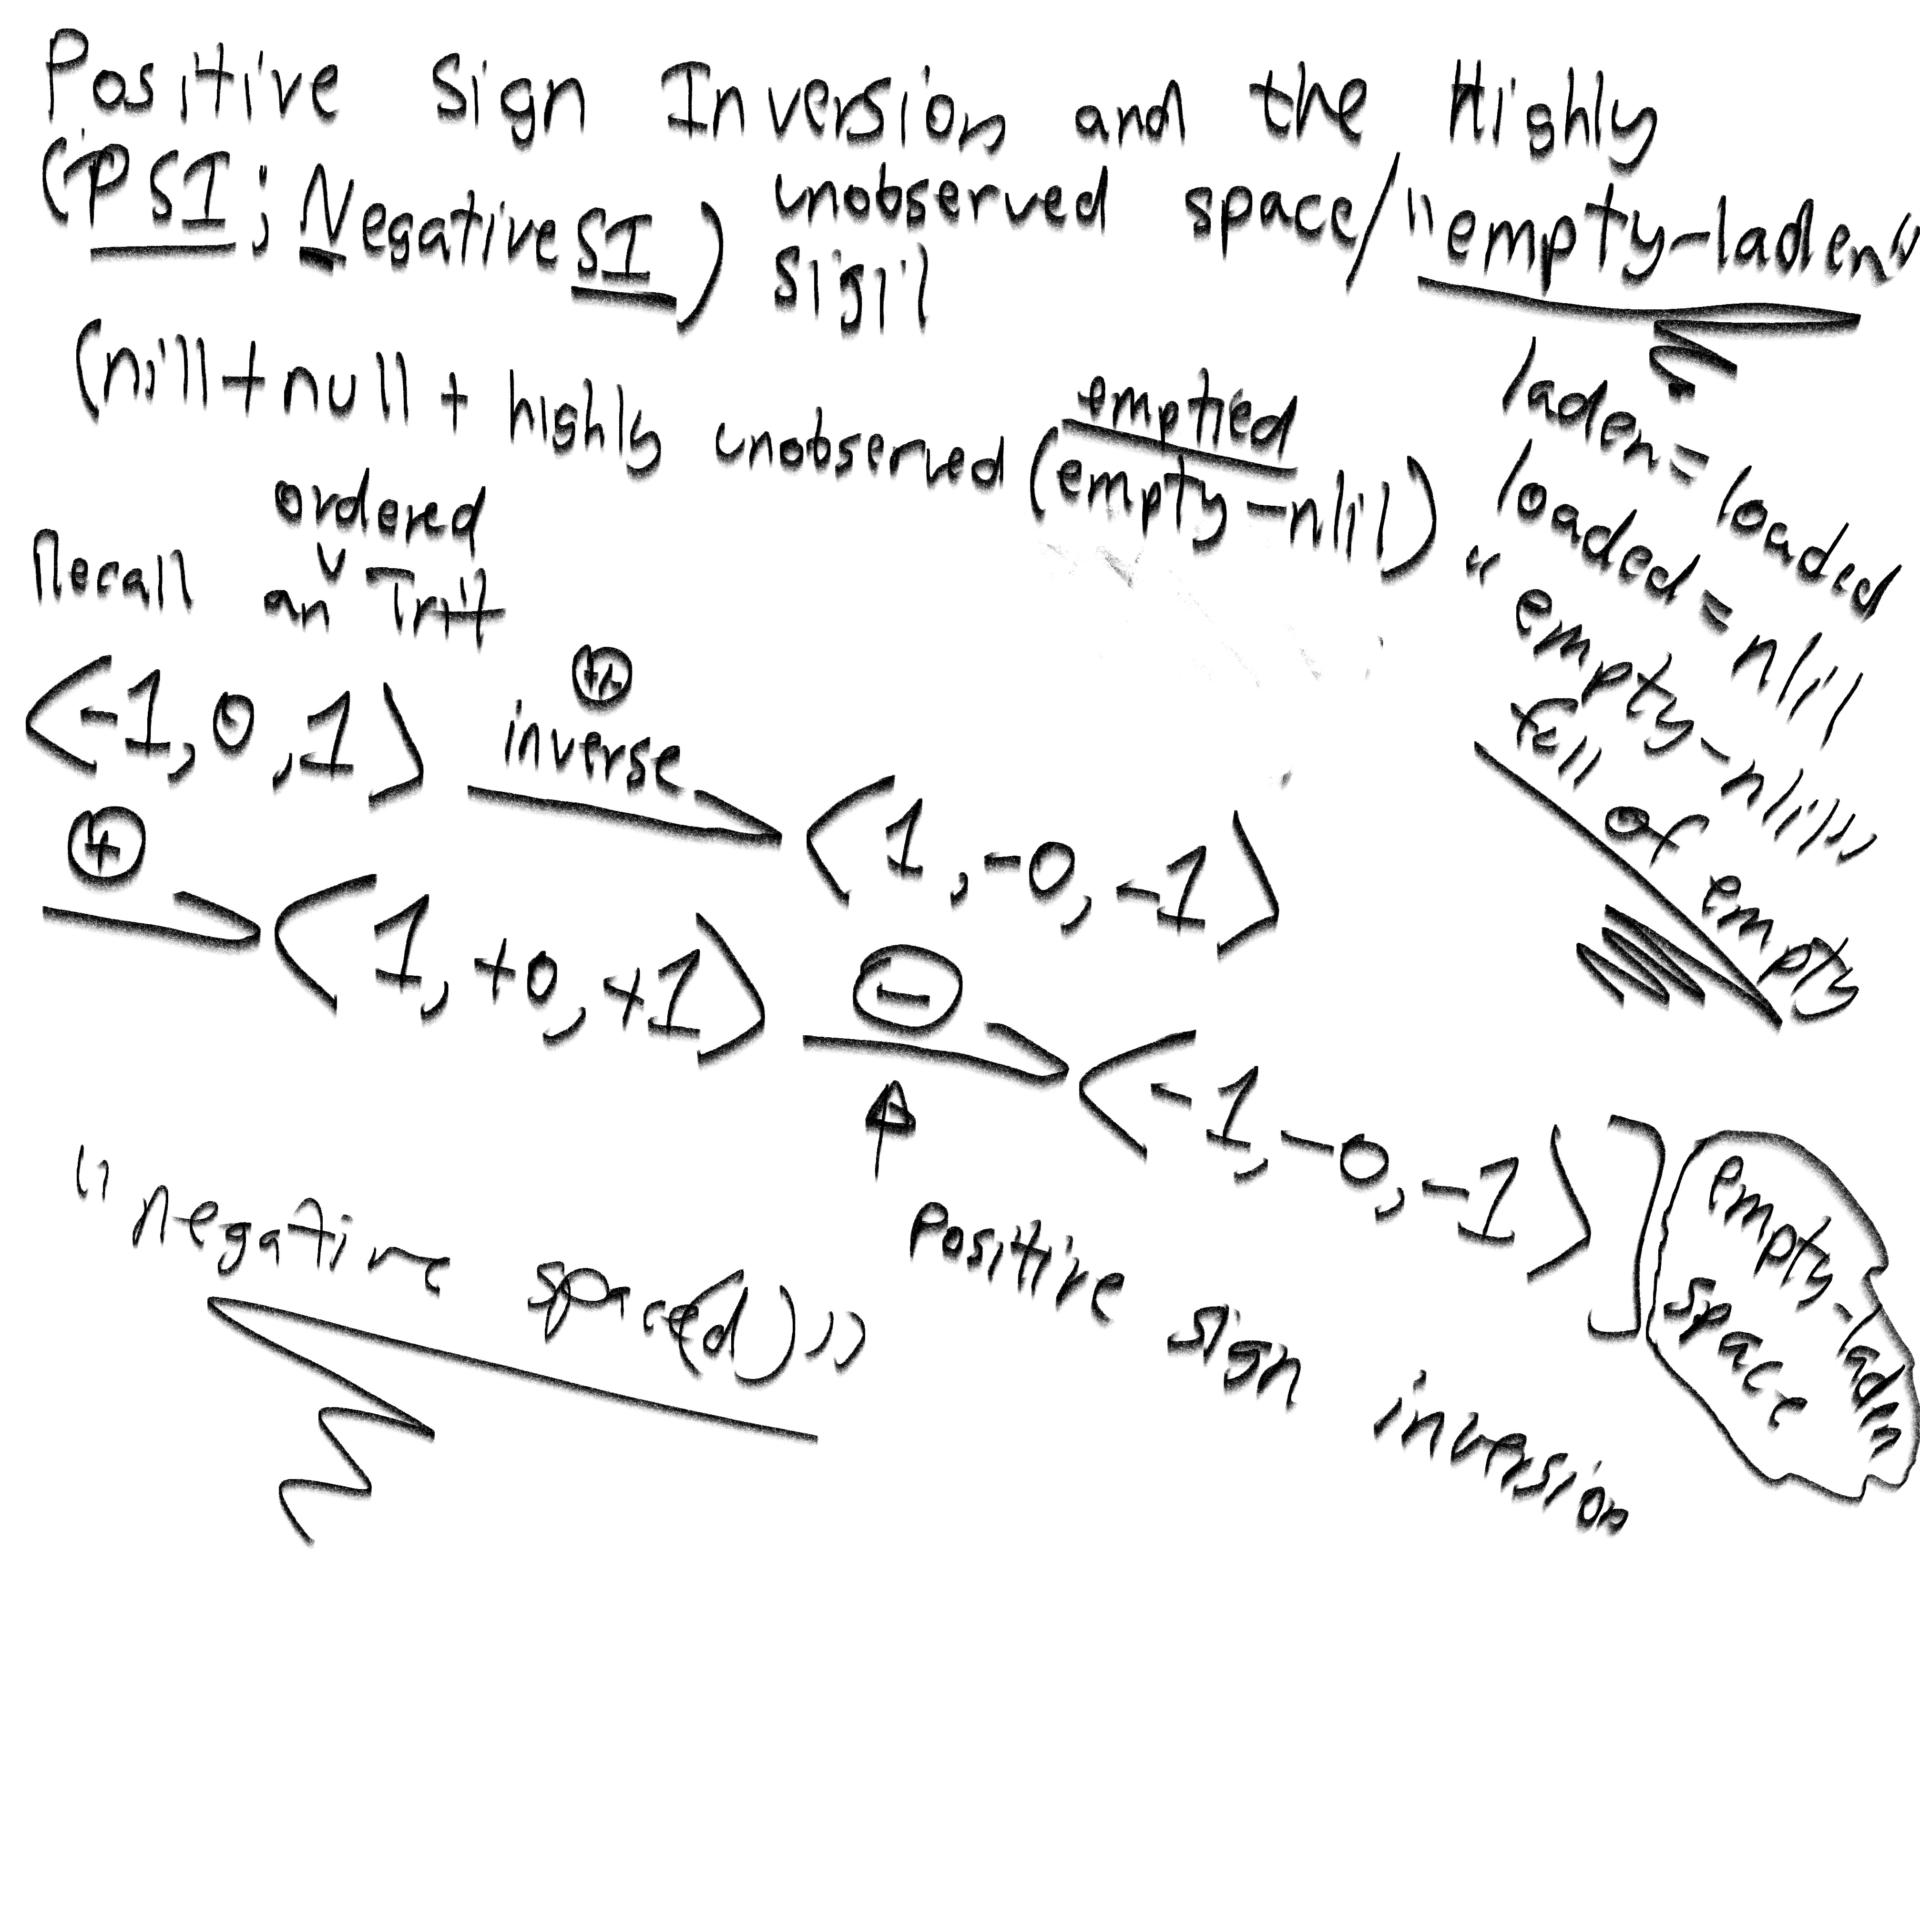 Positive Sign Inversion and the Highly
(PSI; NegativeSI) unobserved space/"empty-laden"
sigil
(nill+null + highly unobserved (empty-nlil)
emptied
laden = loaded
loaded = nlil
"empty-nlil"
full of empty
Recall an ordered Trit
<-1, 0, 1> inverse <1, -0, -1>
+ <1, +0, +1> - <-1, -0, -1>]
empty-laden
space
Positive sign inversion
"negative space(d)"